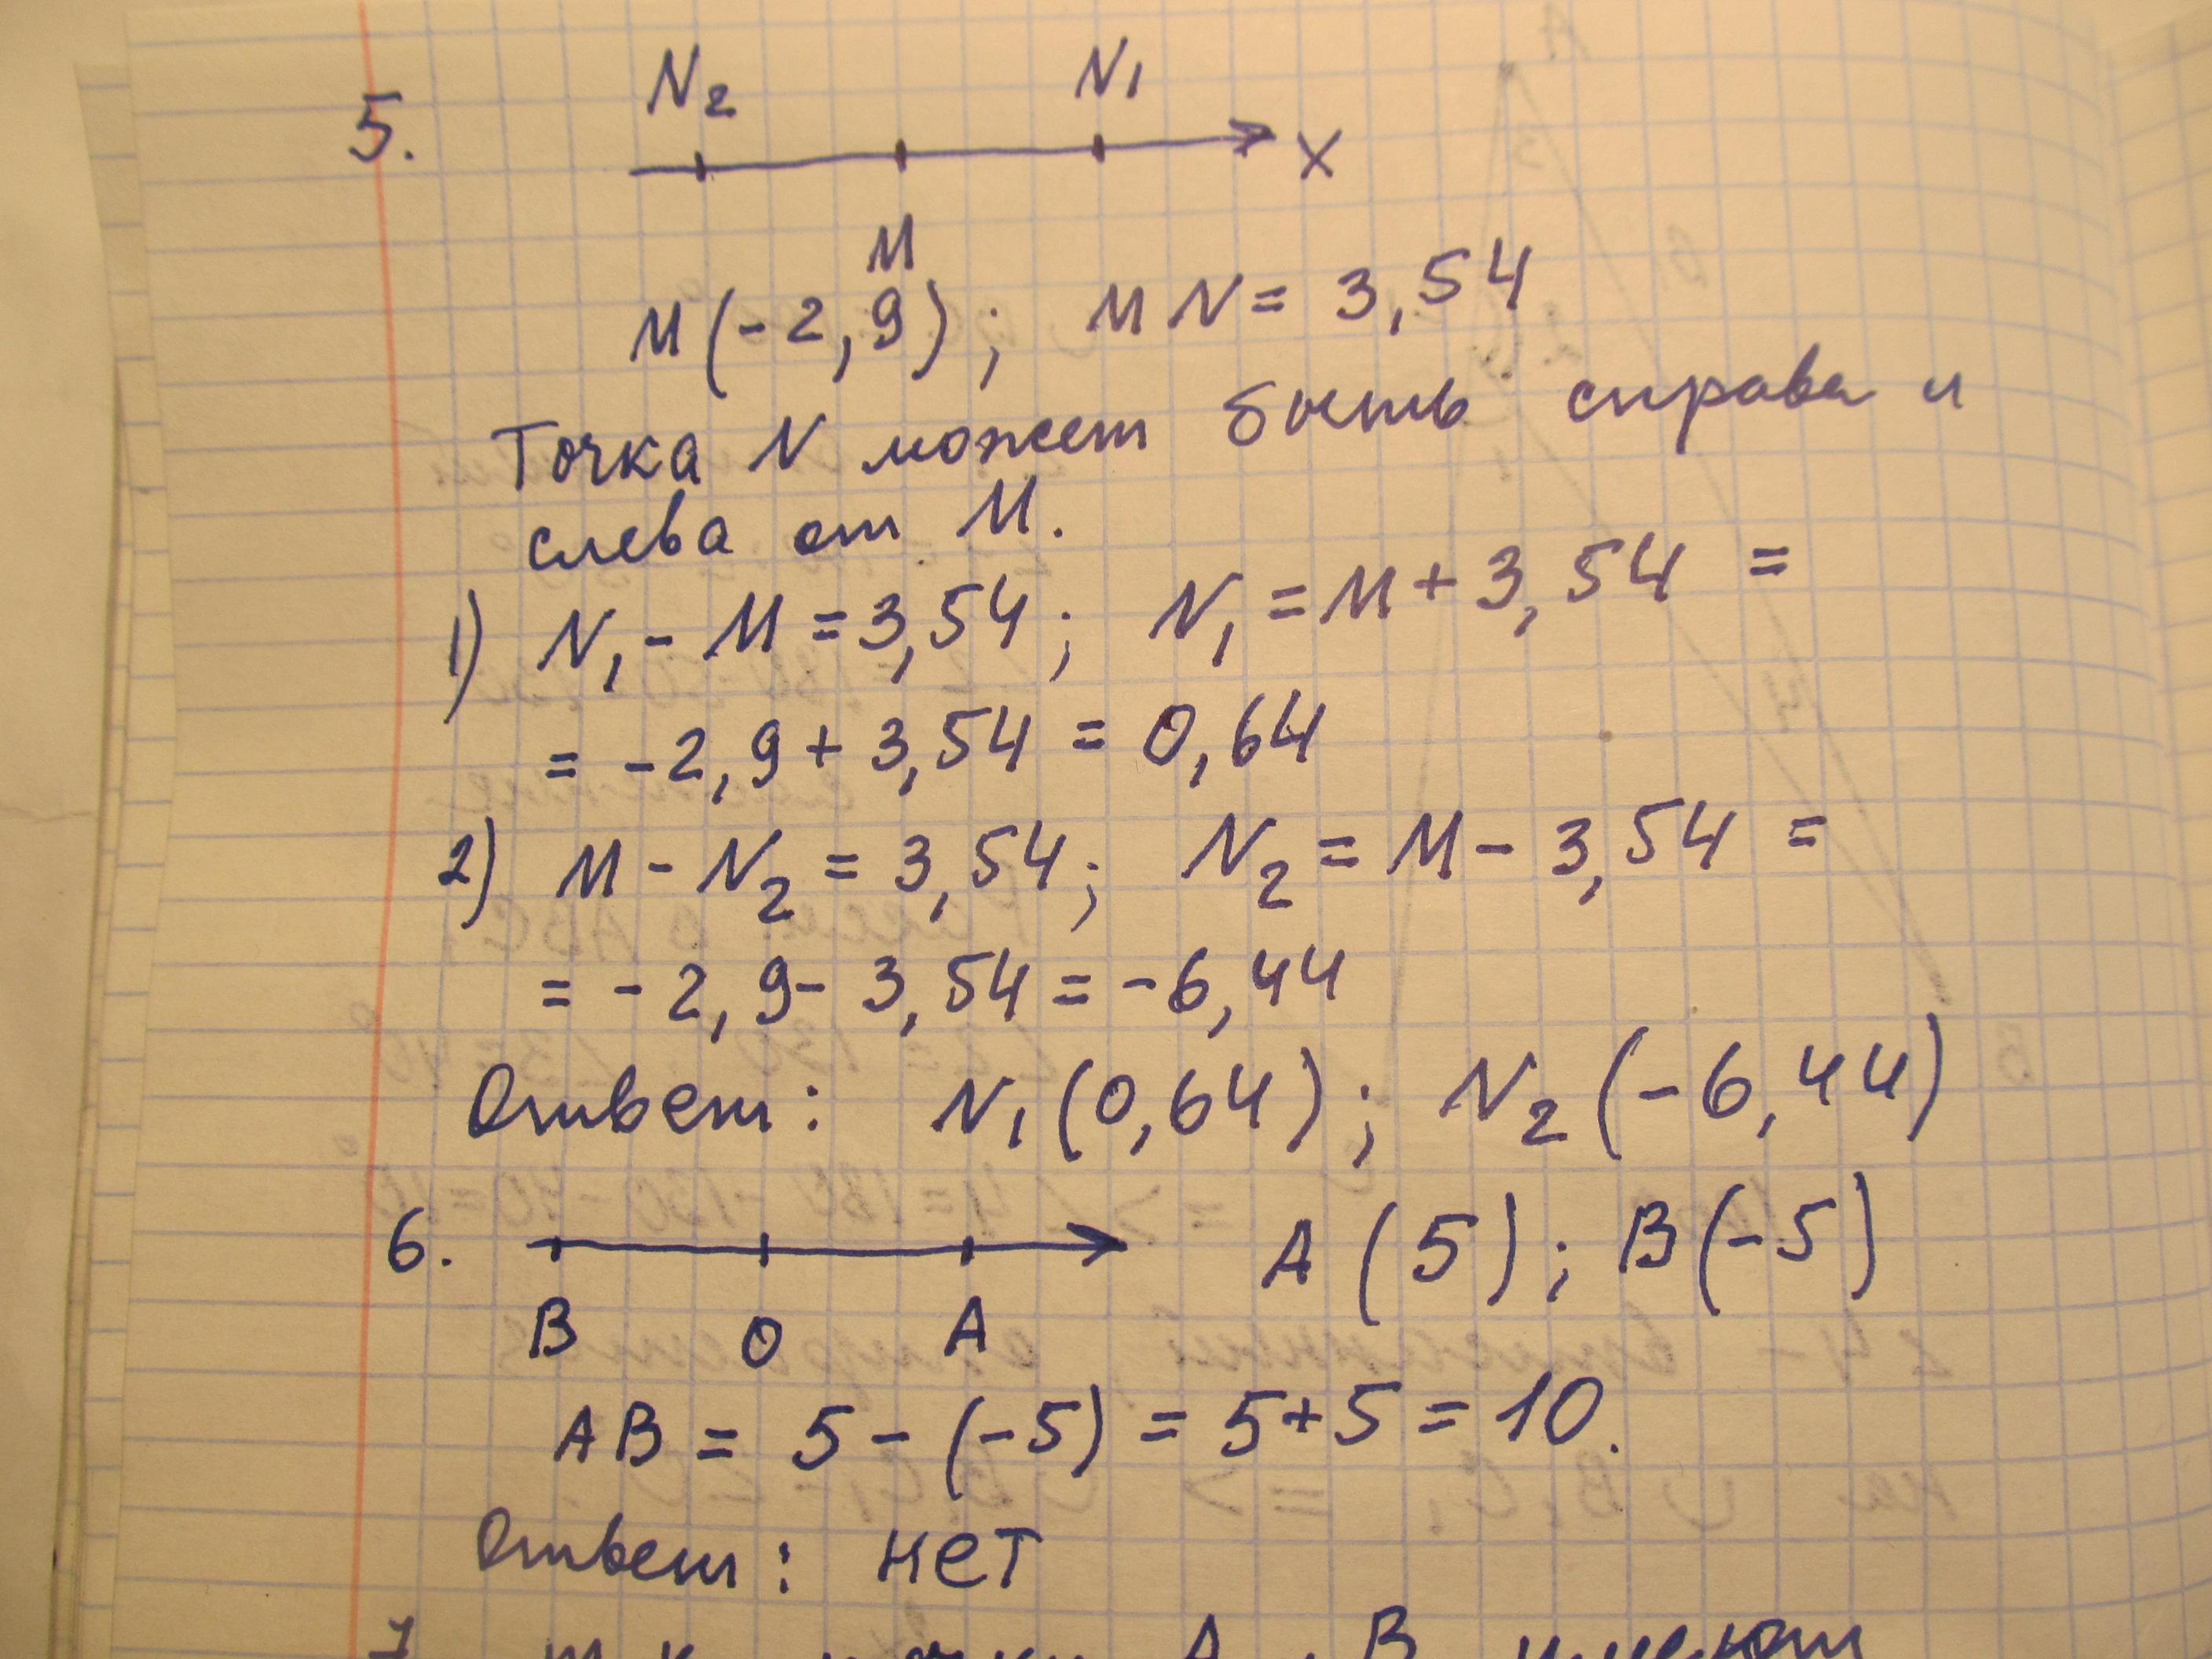 5. N₂ N₁ X
M
M(-2,9); MN = 3,54
Точка N может быть справа и
слева от M.
1) N₁ - M = 3,54; N₁ = M + 3,54 =
= -2,9 + 3,54 = 0,64
2) M - N₂ = 3,54; N₂ = M - 3,54 =
= -2,9 - 3,54 = -6,44
Ответ: N₁(0,64); N₂(-6,44)
6. A(5); B(-5)
B O A
AB = 5 - (-5) = 5+5 = 10.
Ответ: нет
7 т.к. точки A B имеют